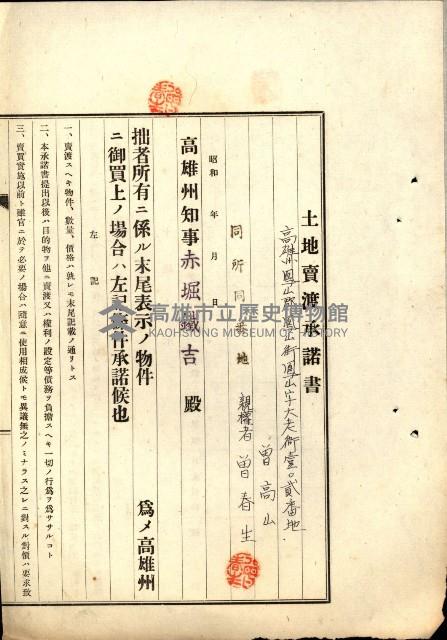 土地賣渡承諾書
高雄州鳳山郡鳳山街鳳山字大老衙壹〇貳番地
曾高山
同所同番地
親權者 曾春生
昭和 年 月 日
高雄州知事赤堀鐵吉 殿
為メ高雄州
拙者所有ニ係ル末尾表示ノ物件
ニ御買上ノ場合ハ左記條件承諾候也
左記
一、賣渡スヘキ物件、數量、價格ハ孰レモ末尾記載ノ通リトス
二、本承諾書提出以後ハ目的物ヲ他ニ賣渡又ハ權利ノ設定等債務ヲ負擔スヘキ一切ノ行為ヲ為ササルコト
三、賣買實施以前ト雖官ニ於テ必要ノ場合ハ隨意ニ使用相成候トモ異議無之ノミナラス之レニ對スル對價ハ要求致
高雄市立歷史博物館
KAOHSIUNG MUSEUM OF HISTORY